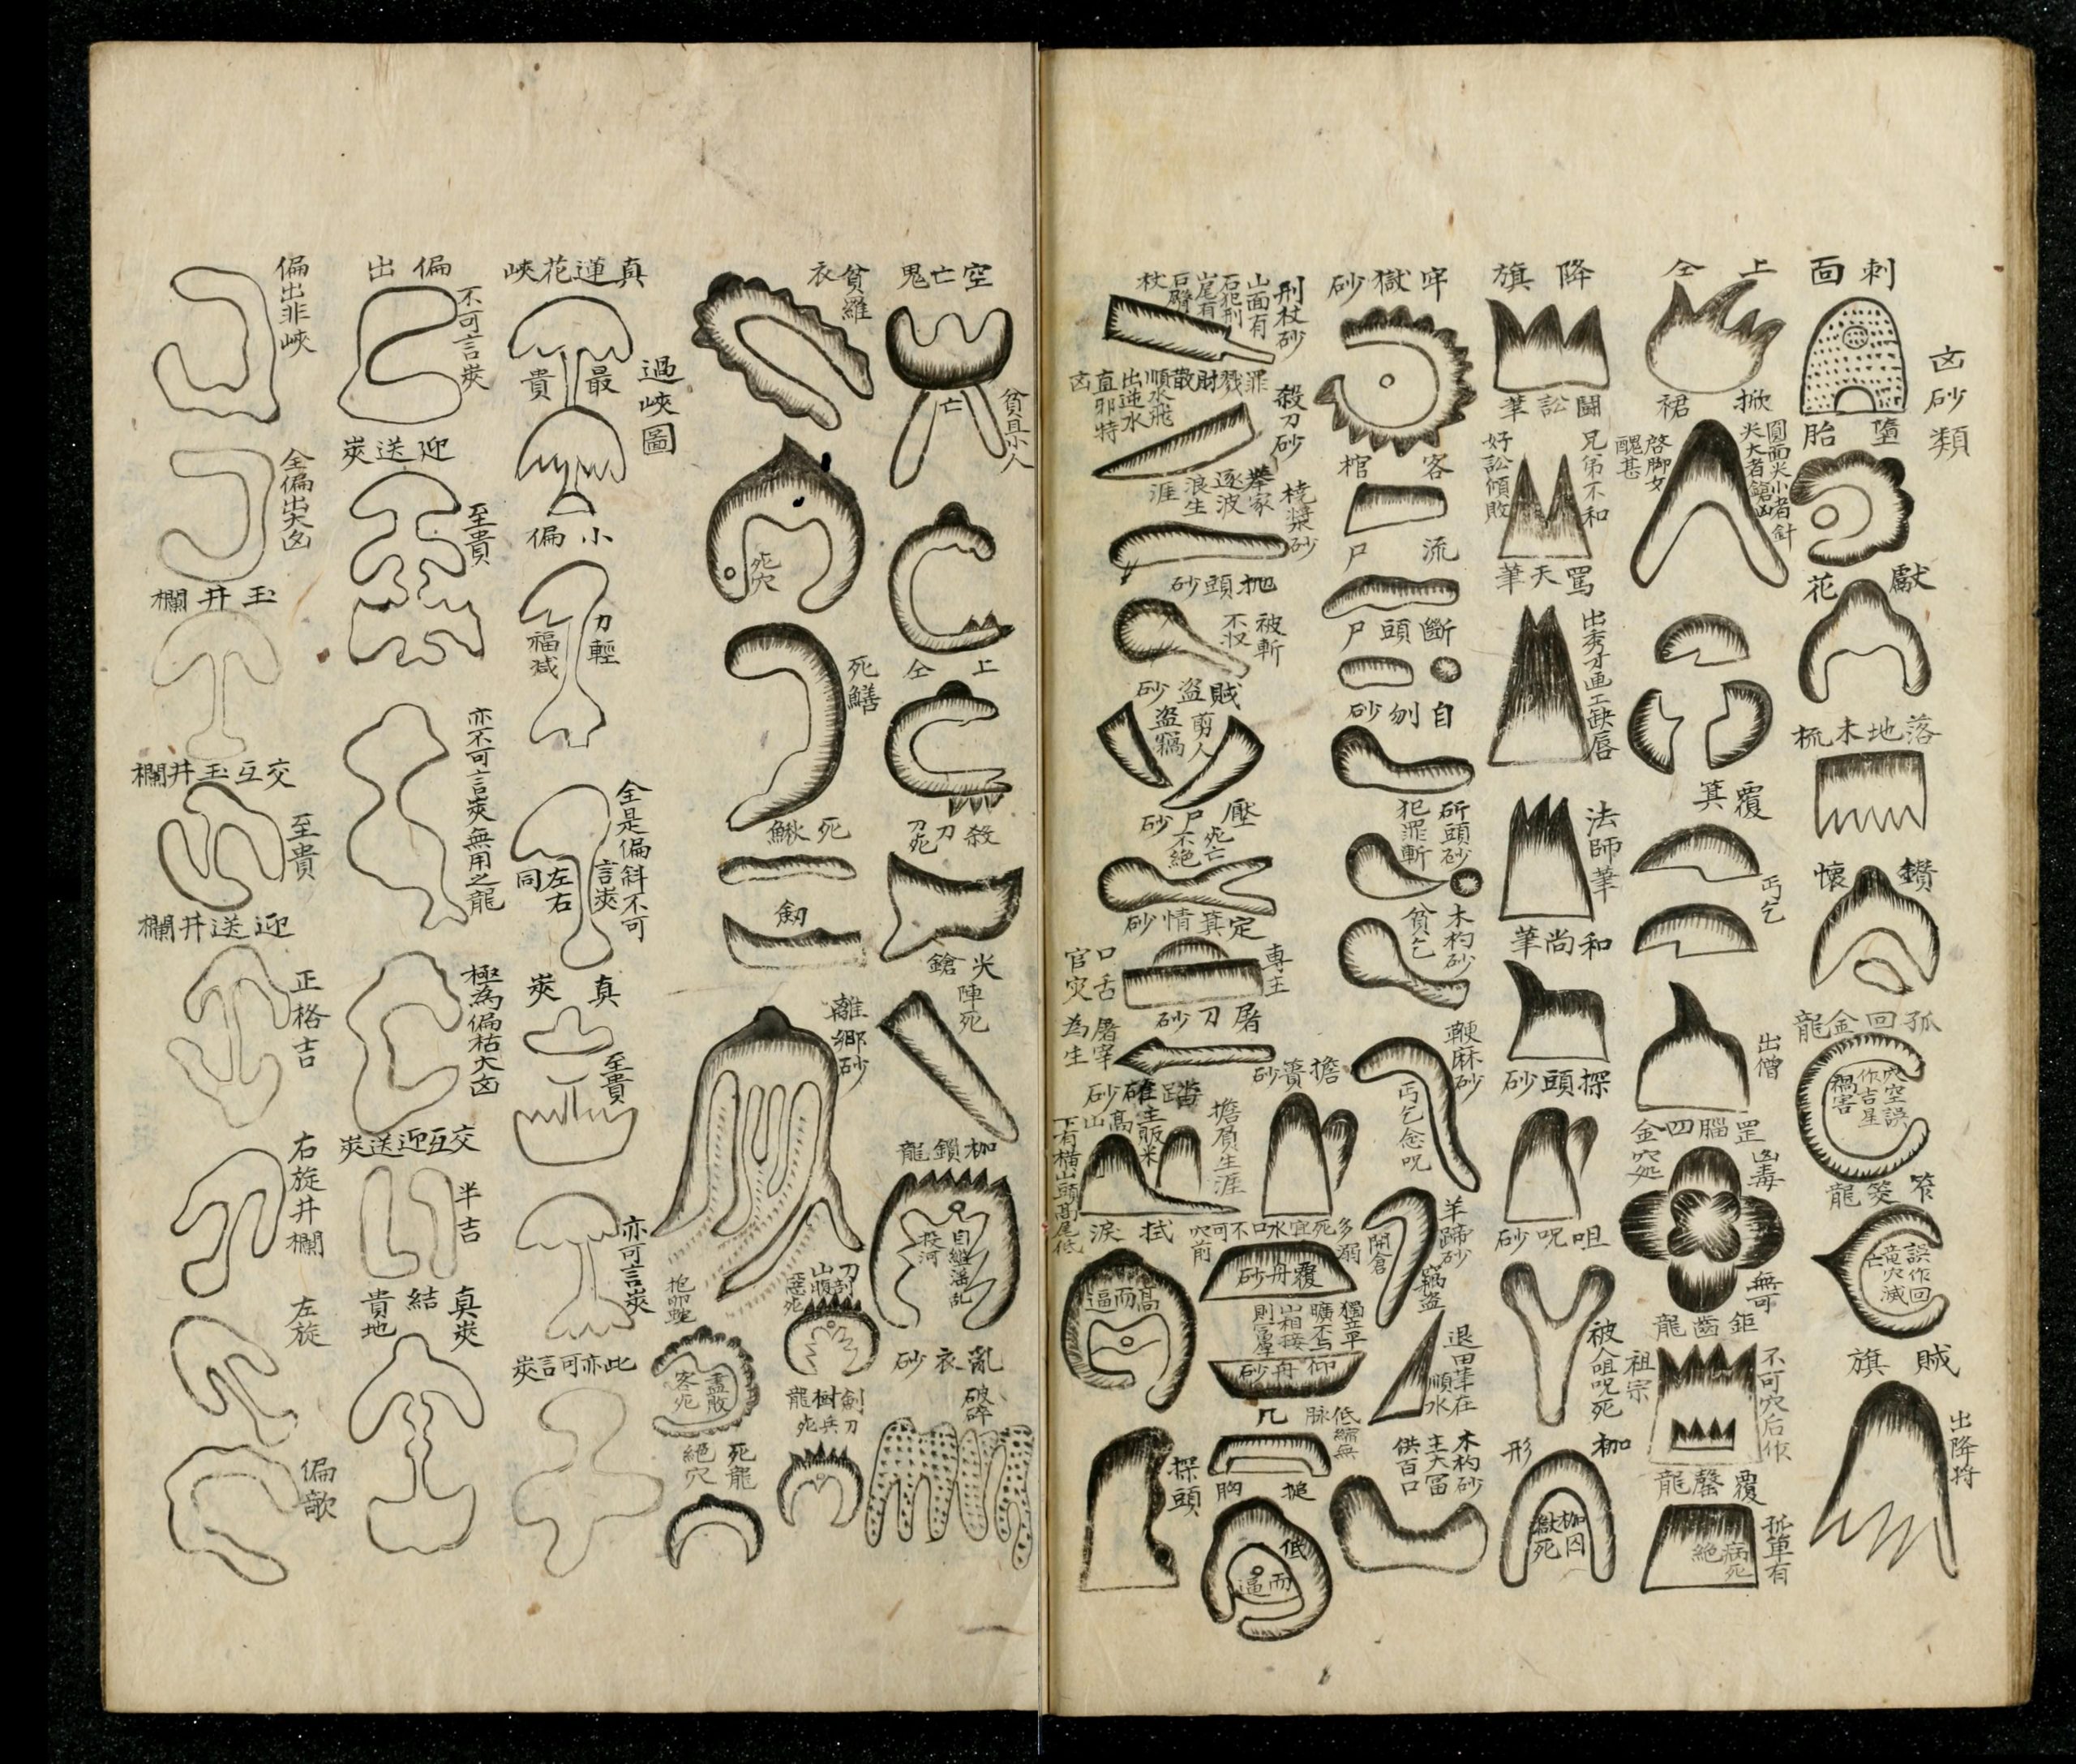 凶砂類
刺面
墮胎
獻花
落地木梳
鑽懷
孤回金龍
穴空誤
作吉星
禍害
笮筊龍
誤作回
竜穴滅
亡
賊旗
出降将
上仝
掀裙
圓面尖小者針
尖大者鎗山
啓脚女
醜甚
覆箕
丐乞
出僧
罡腦四金
凶毒
無可
鉅齒龍
不可穴后作
祖宗
覆罄龍
孤單有
病死
絶
降旗
鬪訟筆
兄弟不和
好訟傾敗
罵天筆
出秀才画工缺唇
法師筆
和尚筆
探頭砂
咀呪砂
被人咀呪死
枷形
枷囚
獄死
牢獄砂
客棺
流尸
斷頭尸
自刎砂
斫頭砂
犯罪斬
木杓砂
貧乞
鞭麻砂
丐乞念呪
羊蹄砂
竊盗
開倉
退田筆在
順水
木杓砂
主大冨
供百口
刑杖砂
山面有
石犯刑
殺刀砂
橈槳砂
舉家
逐波
浪生
涯
抛頭砂
被斬
不收
賊盗砂
剪人
盗竊
壓尸砂
死亡
不絶
定箕情砂
專主
口舌
官灾
屠刀砂
屠宰
為生
擔賷砂
擔負生涯
踏碓砂
主販米
下有橫山頭高尾低
拭淚
高而逼
覆舟砂
獨立平
曠不与
山相接
則富厚
仰舟砂
几
低
脉
搥胸
低而逼
探頭
空亡鬼
亡
貧且小人
上仝
殺刀
尖鎗
陣死
枷鎖龍
自縊滛乱
投河
亂衣砂
破碎
貧羅衣
死穴
死鱔
死鰍
劒
離郷砂
刀剖
山腹
惡死
劍樹龍
刀兵死
盡敗
客死
死龍
絶穴
過峽圖
真蓮花峽
最貴
小偏
力輕
福减
全是偏斜不可
言㚒
左右
同
真㚒
至貴
亦可言㚒
此亦可言㚒
偏出
不可言㚒
迎送㚒
至貴
亦不可言㚒無用之龍
極為偏枯大凶
交互迎送㚒
半吉
真㚒
結
貴地
偏出非峽
全偏出大凶
玉井欄
交互玉井欄
至貴
迎送井欄
正格吉
右旋井欄
左旋
偏